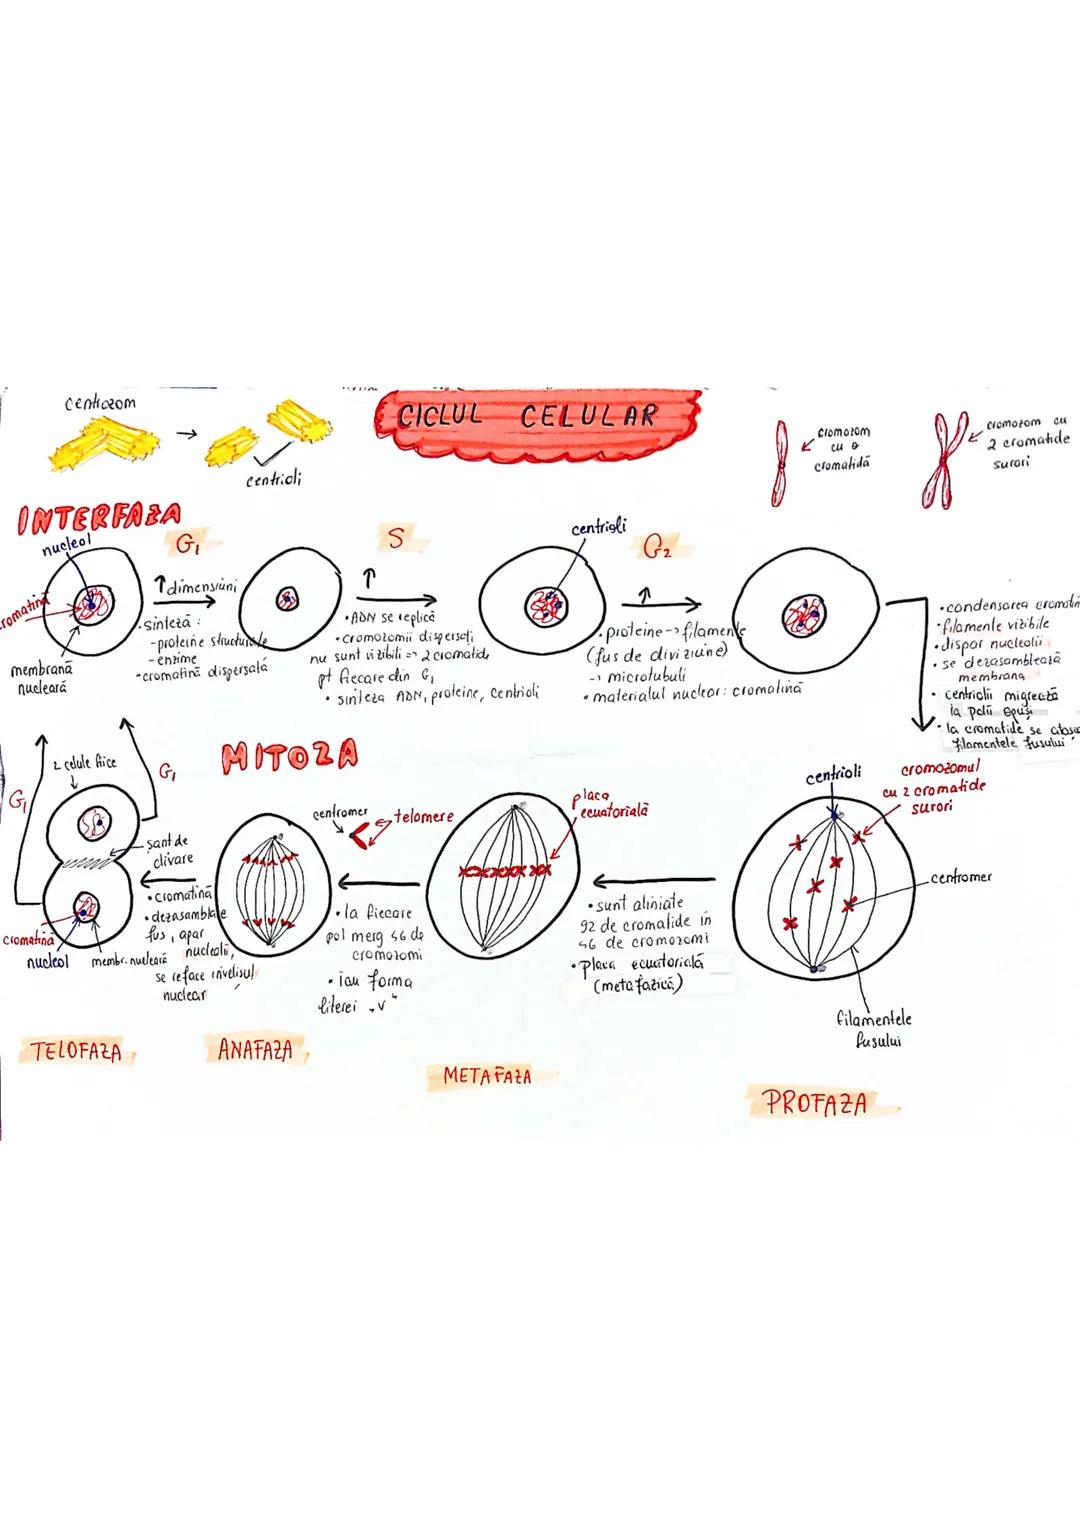 centrozom
centrioli
CICLUL CELULAR
cromozom
cu o
cromatidă
cromozom cu
2 cromatide
surori
INTERFAZA
nucleol
cromatină
membrană
nucleară
G₁
↑ dimensiuni
• sinteză :
- proteine structurale
- enzime
- cromatină dispersată
S
↑
• ADN se replică
• cromozomii dispersați
nu sunt vizibili => 2 cromatide
pt fiecare din G₁
• sinteza ADN, proteine, centrioli
centrioli
G₂
↑
• proteine -> filamente
(fus de diviziune)
-> microtubuli
• materialul nuclear: cromatină
• condensarea
• filamente vizibile
• dispar nucleolii
• se dezasamblează
membrana
• centriolii migrează
la polii opuși
• la cromatide se
filamentele fusului
MITOZA
centrioli
cromozomul
cu 2 cromatide
surori
centromer
filamentele
fusului
PROFAZA
• sunt aliniate
92 de cromatide în
46 de cromozomi
• placa ecuatorială
(metafazică)
placa
ecuatorială
METAFAZA
centromer
telomere
• la fiecare
pol merg 46 de
cromozomi
• iau forma
literei „v"
ANAFAZA
• cromatină
• dezasamblare
fus, apar
nucleolii,
se reface învelișul
nuclear
2 celule fiice
G₁
G₁
șant de
clivare
cromatină
nucleol
membr. nucleară
TELOFAZA